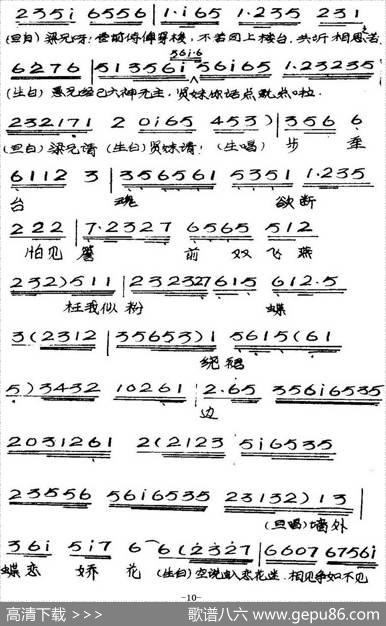 2 3 5 i 6 5 5 6 | 1 · i 6 5 1 · 2 3 5 2 3 1
(旦白) 梁兄呀! 楼台, 共听相思
5 6 i · 6
6 2 7 6 | 5 1 3 5 6 i 5 6 i 6 5 1 · 2 3 2 3 5
(生白) 愚兄经已六神无主, 贤妹你话点就点啦.
2 3 2 1 7 1 2 0 i 6 5 4 5 3 ) | 3 5 6 6
(旦白) 梁兄请 (生白) 贤妹请! (生唱) 步 重
6 1 1 2 3 | 3 5 6 5 6 1 5 3 5 1 1 · 2 3 5
台 魂 欲断
2 2 2 | 7 · 2 3 2 7 6 5 6 5 5 1 2
怕见 前 双飞燕
2 3 2 ) 5 1 1 | 2 3 2 3 2 7 6 1 5 6 1 2 · 5
枉我似粉 蝶
3 ( 2 3 1 2 | 3 5 6 5 3 ) 1 5 6 1 5 ( 6 1
绕裙
5 ) 3 4 3 2 1 0 2 6 1 | 2 · 6 5 3 5 6 i 6 5 3 5
边
2 0 3 1 2 6 1 2 ( 2 1 2 3 5 i 6 5 3 5
2 3 5 5 6 5 6 i 6 5 3 5 2 3 1 3 2 ) 1 3
(旦唱) 墙外
3 6 i 5 i 7 6 6 ( 2 3 2 7 | 6 6 0 7 6 7 5 6 i
蝶恋 娇 花 (生白) 恋花迷 相见争如不见
-10-
高清下载 >>> 歌谱八六 www.gepu86.com